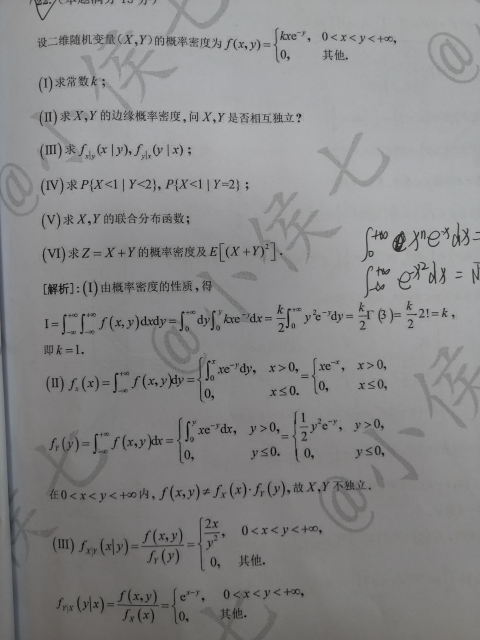 22.(本题满分 15 分)
设二维随机变量(X,Y)的概率密度为 f(x,y)={kxe^{-y}, 0<x<y<+∞, 0, 其他.
(Ⅰ)求常数 k；
(Ⅱ)求 X,Y 的边缘概率密度,问 X,Y 是否相互独立?
(Ⅲ)求 f_{x|y}(x|y), f_{y|x}(y|x)；
(Ⅳ)求 P{X<1|Y<2}, P{X<1|Y=2}；
(Ⅴ)求 X,Y 的联合分布函数；
∫_0^{+∞} x^n e^{-x}dx=
(Ⅵ)求 Z=X+Y 的概率密度及 E[(X+Y)^2].
∫_{-∞}^{+∞} e^{-x^2}dx=
[解析]:(Ⅰ)由概率密度的性质,得
1=∫_{-∞}^{+∞}∫_{-∞}^{+∞} f(x,y)dxdy=∫_0^{+∞}dy∫_0^y kxe^{-y}dx=k/2∫_0^{+∞}y^2e^{-y}dy=k/2Γ(3)=k/2·2!=k,
即 k=1.
(Ⅱ) f_x(x)=∫_{-∞}^{+∞} f(x,y)dy={∫_0^x xe^{-y}dy, x>0, 0, x≤0. ={xe^{-x}, x>0, 0, x≤0,
f_Y(y)=∫_{-∞}^{+∞} f(x,y)dx={∫_0^y xe^{-y}dx, y>0, 0, y≤0. ={1/2 y^2e^{-y}, y>0, 0, y≤0,
在 0<x<y<+∞ 内, f(x,y)≠f_X(x)·f_Y(y),故 X,Y 不独立.
(Ⅲ) f_{X|Y}(x|y)=f(x,y)/f_Y(y)={2x/y^2, 0<x<y<+∞, 0, 其他.
f_{Y|X}(y|x)=f(x,y)/f_X(x)={e^{x-y}, 0<x<y<+∞, 0, 其他.
@小侯七
@小侯七
@小侯七